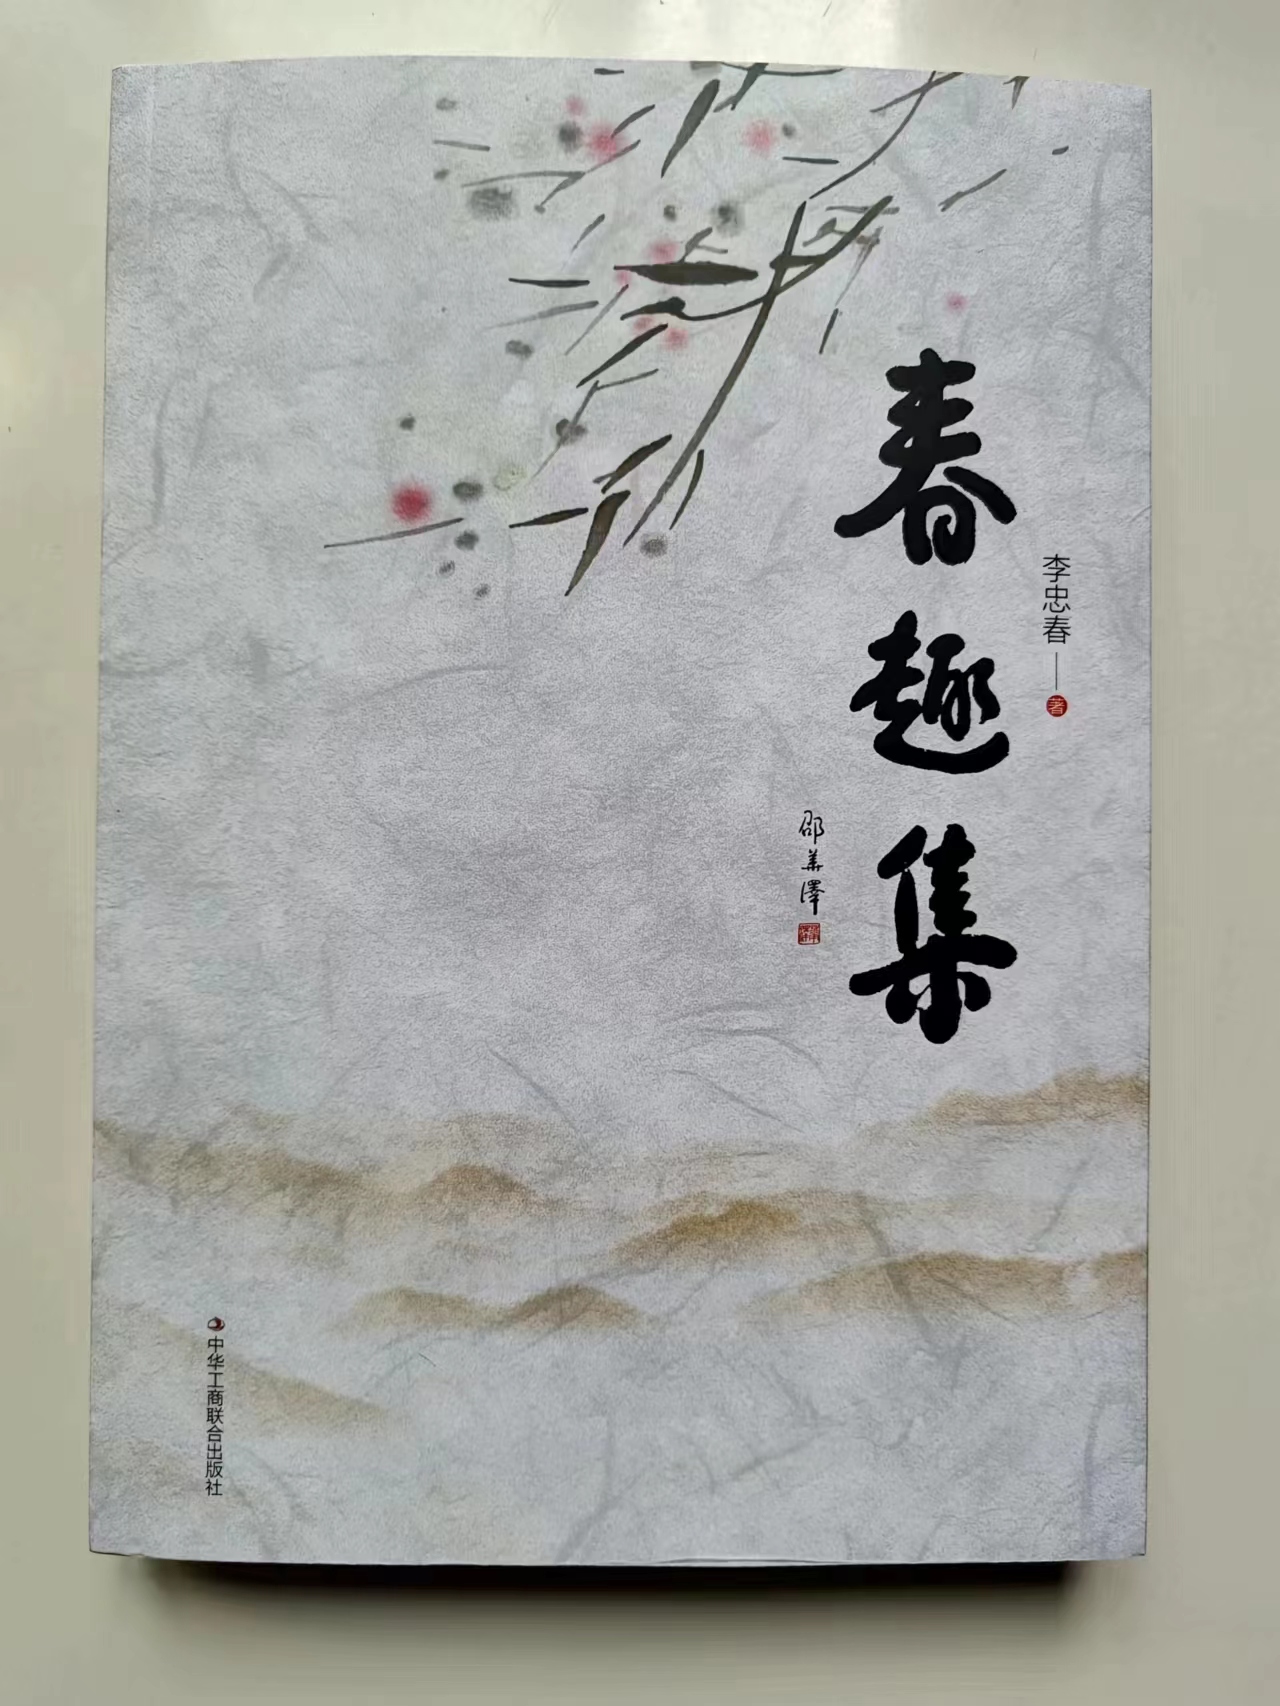 李忠春
著
春趣集
邵華澤
中华工商联合出版社